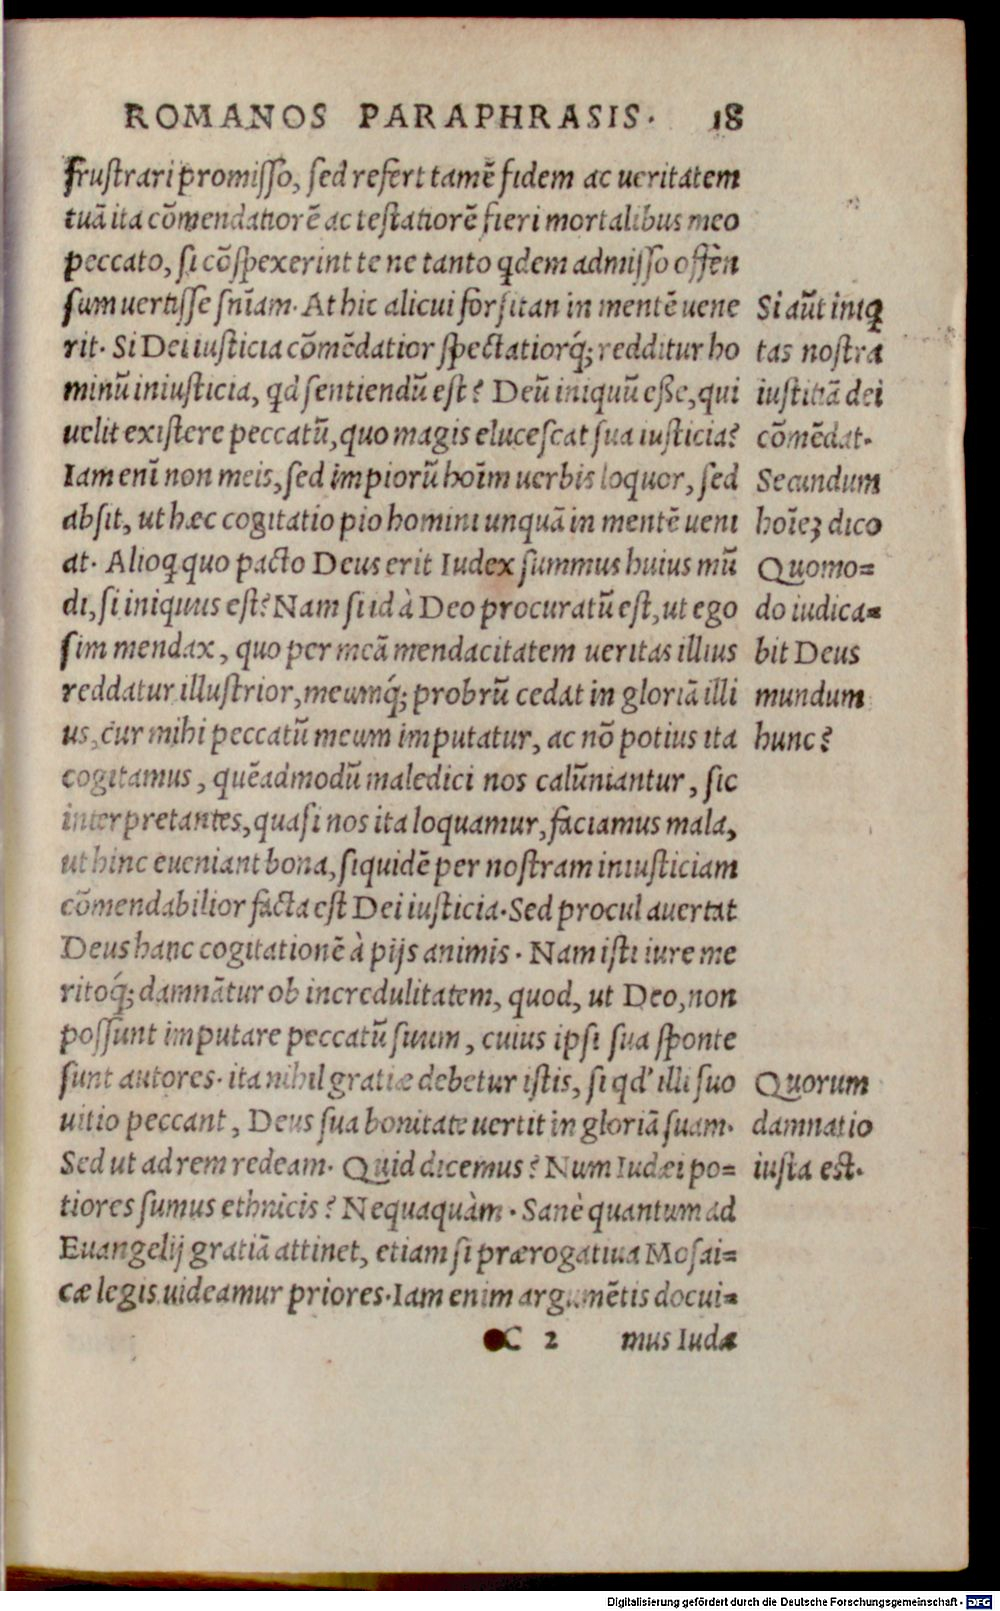 ROMANOS PARAPHRASIS. 18
frustrari promisso, sed refert tamē fidem ac ueritatem
tuā ita cōmendatiorē ac testatiorē fieri mortalibus meo
peccato, si cōspexerint te ne tanto qdem admisso offen
sum uertisse snīam. At hic alicui forsitan in mentē uene
rit. Si Dei iusticia cōmēdatior spectatiorq́; redditur ho
minū iniusticia, qd sentiendū est? Deū iniquū eße, qui
uelit existere peccatū, quo magis elucescat sua iusticia?
Iam enī non meis, sed impiorū hoīm uerbis loquor, sed
absit, ut hæc cogitatio pio homini unquā in mentē ueni
at. Alioq quo pacto Deus erit Iudex summus huius mū
di, si iniquus est? Nam si id à Deo procuratū est, ut ego
sim mendax, quo per meā mendacitatem ueritas illius
reddatur illustrior, meumq́; probrū cedat in gloriā illi
us, cur mihi peccatū meum imputatur, ac nō potius ita
cogitamus, quēadmodū maledici nos calūniantur, sic
interpretantes, quasi nos ita loquamur, faciamus mala,
ut hinc eueniant bona, siquidē per nostram iniusticiam
cōmendabilior facta est Dei iusticia. Sed procul auertat
Deus hanc cogitationē à pijs animis. Nam isti iure me
ritoq́; damnātur ob incredulitatem, quod, ut Deo, non
possunt imputare peccatū suum, cuius ipsi sua sponte
sunt autores. ita nihil gratiæ debetur istis, si qd' illi suo
uitio peccant, Deus sua bonitate uertit in gloriā suam.
Sed ut ad rem redeam. Quid dicemus? Num Iudæi po=
tiores sumus ethnicis? Nequaquàm. Sanè quantum ad
Euangelij gratiā attinet, etiam si prærogatiua Mosai=
cæ legis uideamur priores. Iam enim argumētis docui=
C 2 mus Iudæ
Si aūt iniq
tas nostra
iustitiā dei
cōmēdat.
Secundum
hoīeȝ dico
Quomo=
do iudica=
bit Deus
mundum
hunc?
Quorum
damnatio
iusta est.
Digitalisierung gefördert durch die Deutsche Forschungsgemeinschaft - DFG